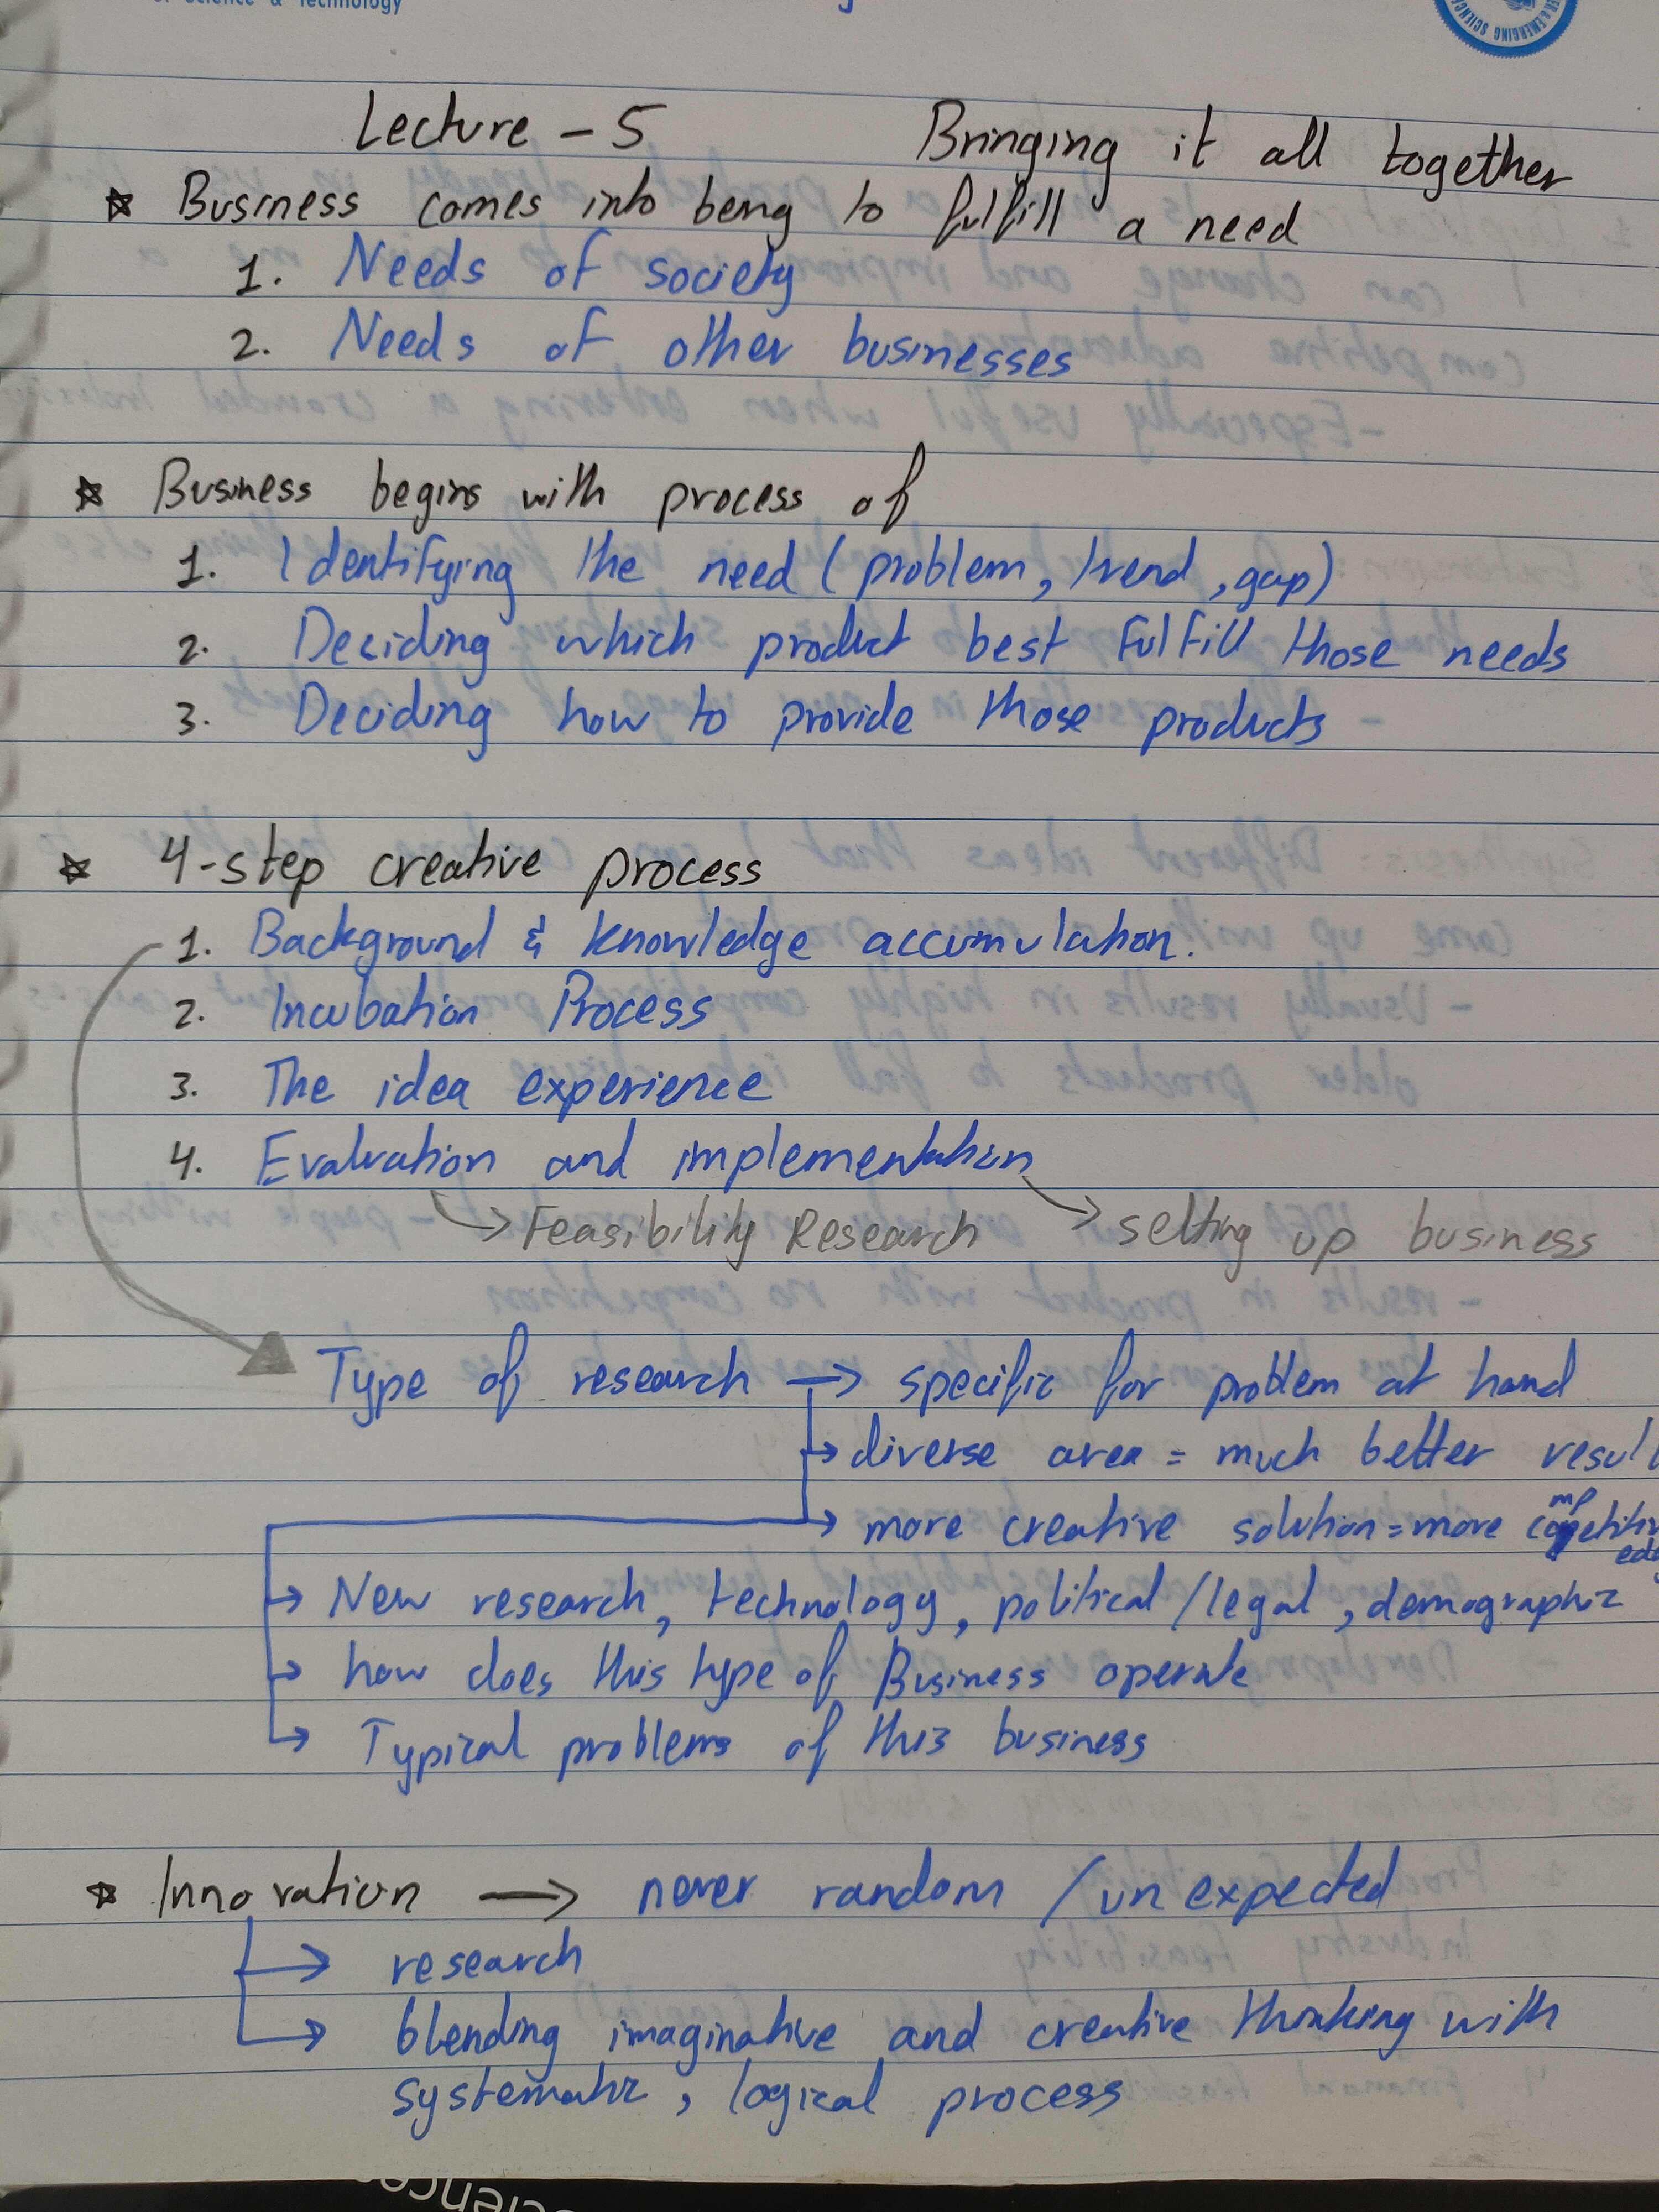 of Science & Technology
Lecture - 5 Bringing it all together
☆ Business comes into being to fulfill a need
1. Needs of society
2. Needs of other businesses
☆ Business begins with process of
1. Identifying the need (problem, trend, gap)
2. Deciding which product best fulfill those needs
3. Deciding how to provide those products
☆ 4-step creative process
1. Background & knowledge accumulation.
2. Incubation Process
3. The idea experience
4. Evaluation and implementation
→ Feasibility Research → setting up business
Type of research → specific for problem at hand
→ diverse area = much better resul
→ more creative solution = more competitiv
edg
→ New research, technology, political/legal, demographic
→ how does this type of Business operate
→ Typical problems of this business
☆ Innovation → never random / unexpected
→ research
→ blending imaginative and creative thinking with
systematic, logical process